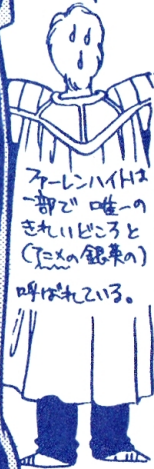 ファーレンハイトは
一部で 唯一の
きれいどころと
(アニメの銀英の)
呼ばれている。